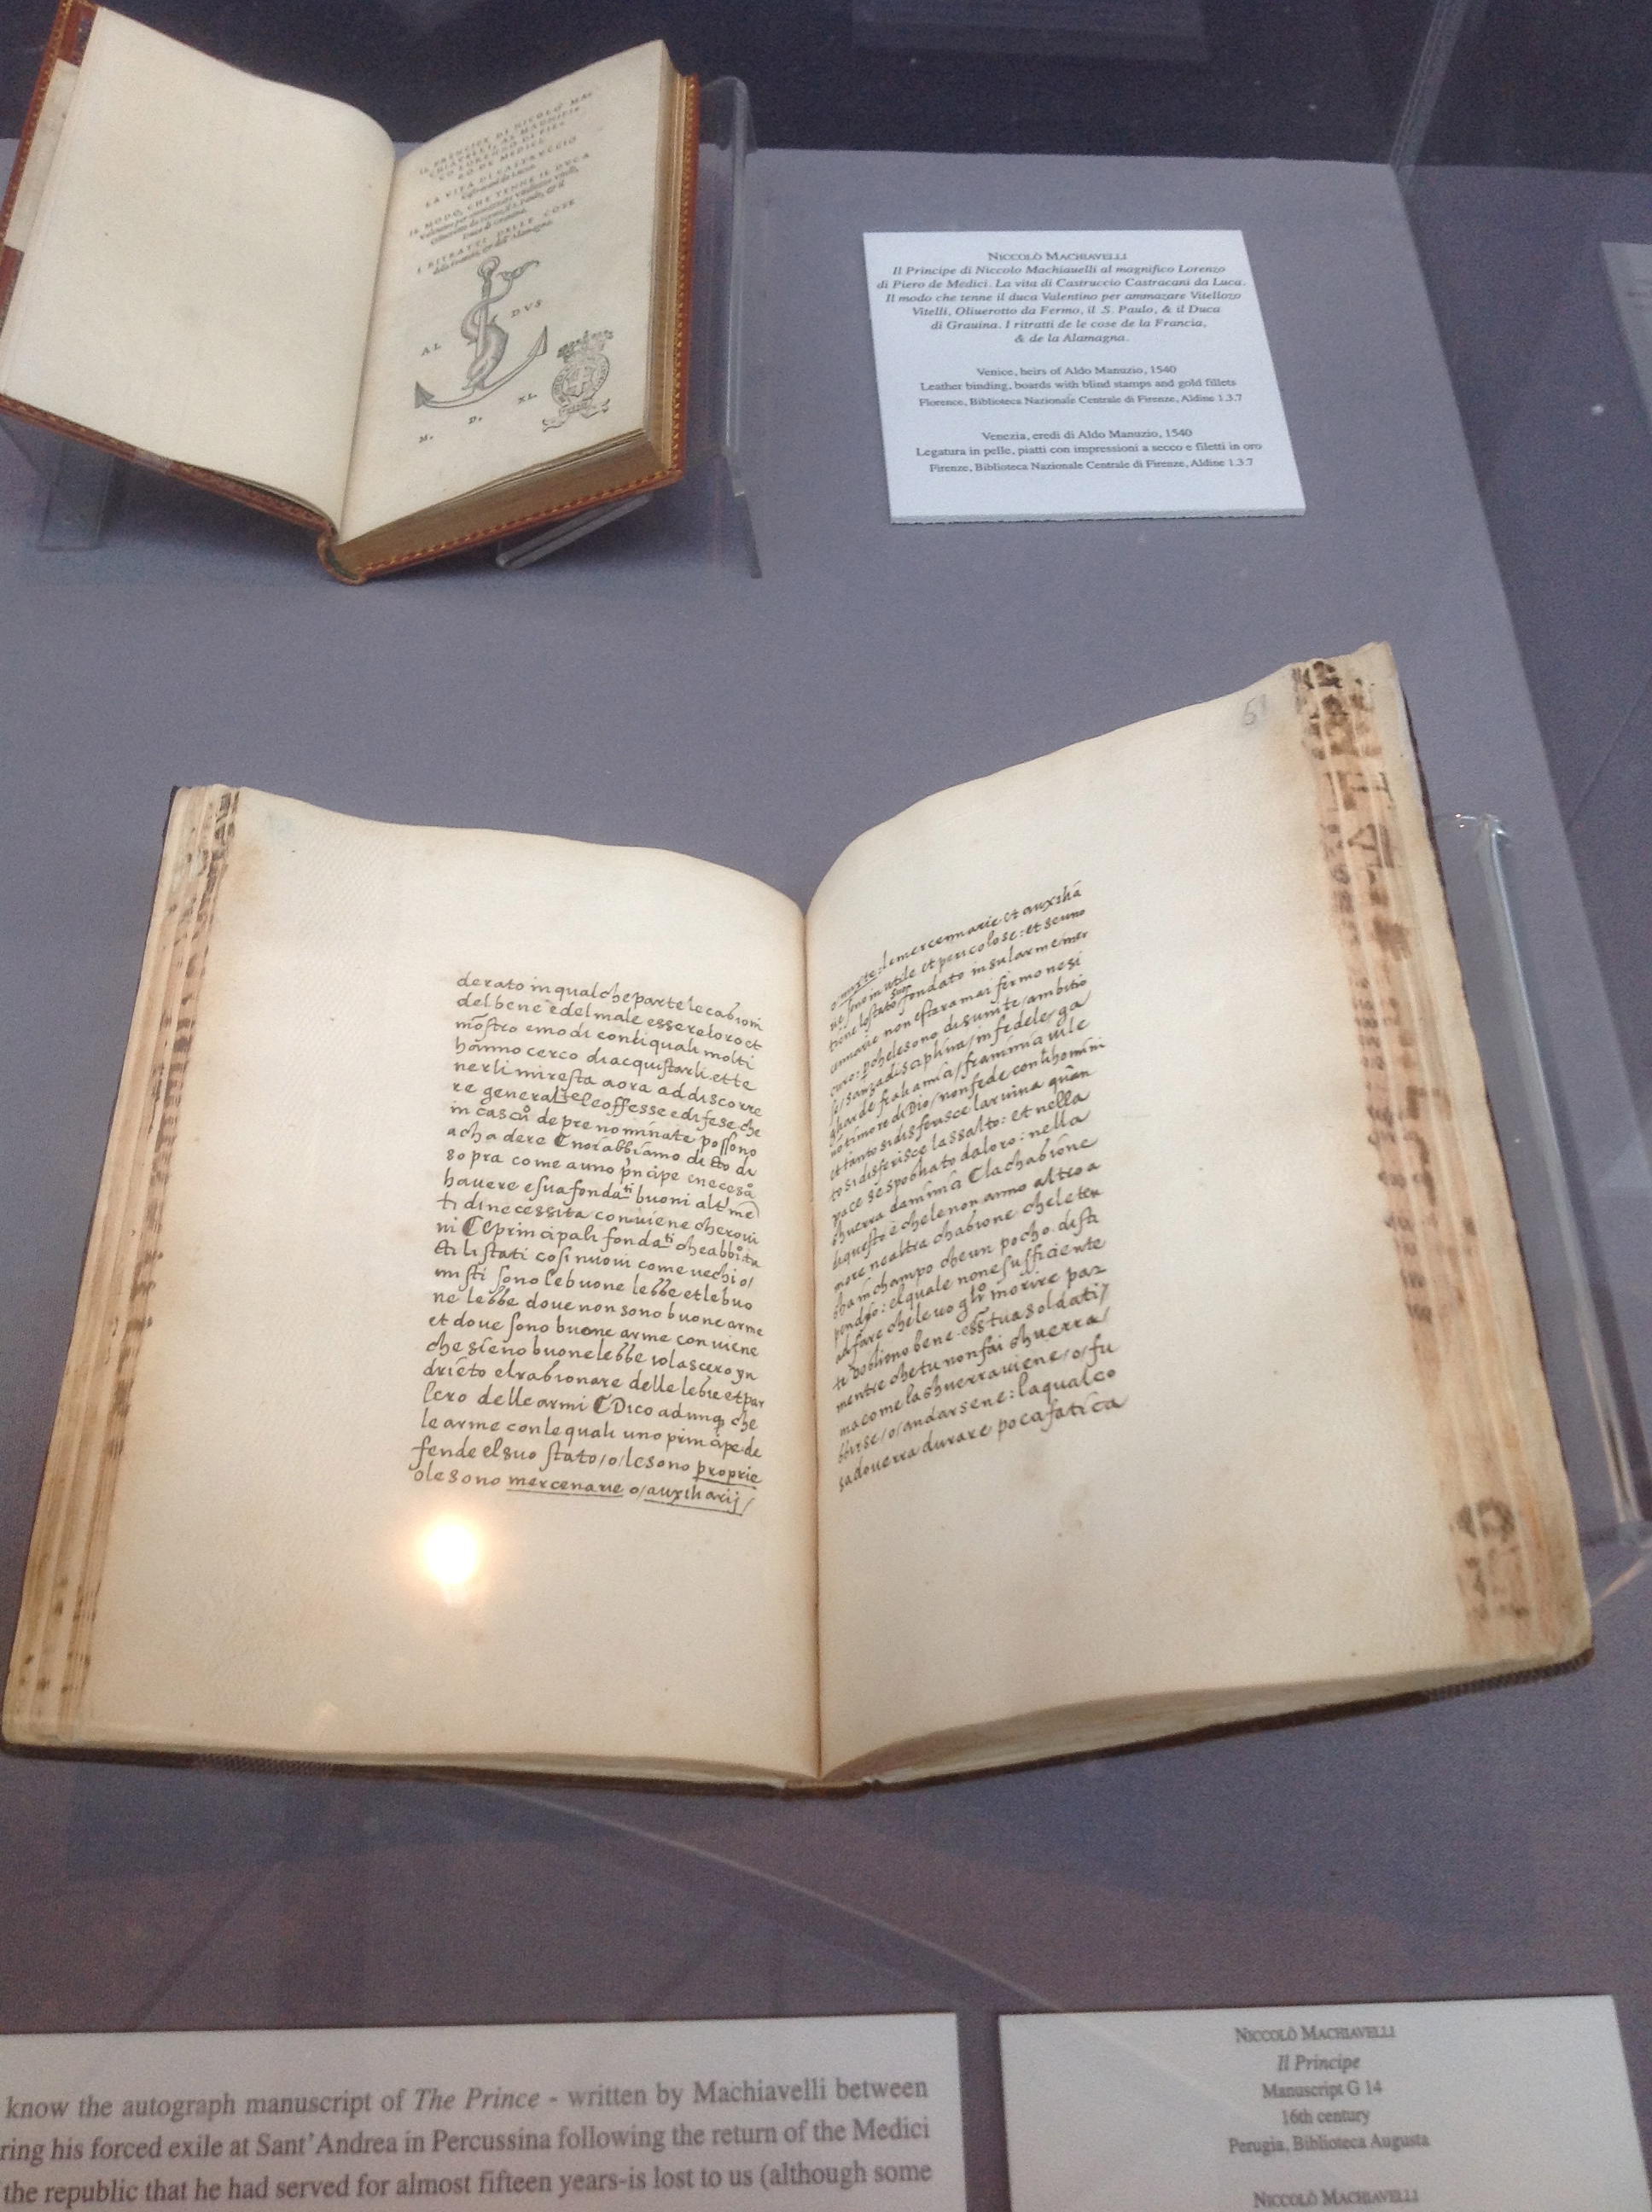 IL PRENCIPE DI NICOLO MAC
CHIAVELLI, AL MAGNIFI-
CO LORENZO DI PIE-
RO DE MEDICI.
LA VITA DI CASTRUCCIO
IL MODO, CHE TENNE IL DVCA
I RITRATTI DELLE COSE
AL DVS
M. D. XL.
NICCOLÒ MACHIAVELLI
Il Principe di Niccolo Machiauelli al magnifico Lorenzo
di Piero de Medici. La vita di Castruccio Castracani da Luca.
Il modo che tenne il duca Valentino per ammazare Vitellozo
Vitelli, Oliuerotto da Fermo, il .S. Paulo, & il Duca
di Grauina. I ritratti de le cose de la Francia,
& de la Alamagna.
Venice, heirs of Aldo Manuzio, 1540
Leather binding, boards with blind stamps and gold fillets
Florence, Biblioteca Nazionale Centrale di Firenze, Aldine 1.3.7
Venezia, eredi di Aldo Manuzio, 1540
Legatura in pelle, piatti con impressioni a secco e filetti in oro
Firenze, Biblioteca Nazionale Centrale di Firenze, Aldine 1.3.7
derato in qualche parte le cabioni
del bene e del male essere loro et
mōstro e modi con li quali molti
hānno cerco di acquistarli et te
nerli mi resta aora ad discorre
re generalte le offesse e difese che
in cascu de prenominate possono
achadere
sopra come a uno
havere e sua fondati buoni
ti di necessita conviene che rovi
ni E principali fondati che abbi
li stati cosi nuovi come vechi o/
misti sono le buone lebbe et le buo
ne lebbe dove non sono buone arme
et dove sono buone arme conviene
che sieno buone lebbe io lascero yn
drieto el rabionare delle lebie et par
lero delle armi Dico adunq che
le arme con le quali uno principe de
fende el suo stato/o/le sono proprie
o le sono mercenarie o/auxiliarij/
o miste: le mercennarie et auxilia
rie sono inutile et pericolose: et se uno
tiene lo stato suo fondato in su larme mer
cennarie non estara mai fermo ne si
curo: p̄che le sono disunite/ambitio
se/sanza disciplina/infedele/ga
gliarde fra li amici/fra nimici vile
nō timore di Dio/non fede con li homini
et tanto si diferisce la ruina quan
to si diferisce lassalto: et nella
pace se spogliato da loro: nella
ghuerra da nimici La chabione
di questo è che le non anno altro a
more ne altra chabione che le ten
gha in champo che un pocho di sti
pendio: el quale non e sufficiente
ad fare che le voglino morire par
te vogliono bene essere tua soldati/
mentre che tu non fai ghuerra/
ma come la ghuerra viene/o/fu
birse/o/andarsene: la qual co
sa doverra durare poca fatica
know the autograph manuscript of The Prince - written by Machiavelli between
ring his forced exile at Sant'Andrea in Percussina following the return of the Medici
the republic that he had served for almost fifteen years-is lost to us (although some
NICCOLÒ MACHIAVELLI
Il Principe
Manuscript G 14
16th century
Perugia, Biblioteca Augusta
NICCOLÒ MACHIAVELLI